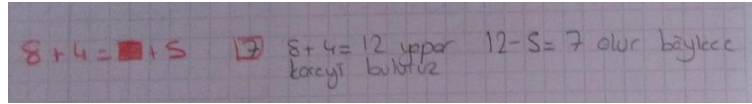 8 + 4 = ■ + 5 7 8 + 4 = 12 yapar 12 - 5 = 7 olur böylece
kareyi buluruz